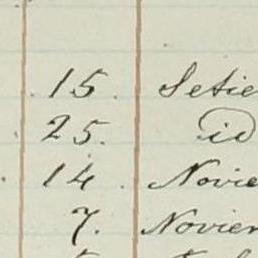 15. Setie
25. id
14. Novie
7. Novier